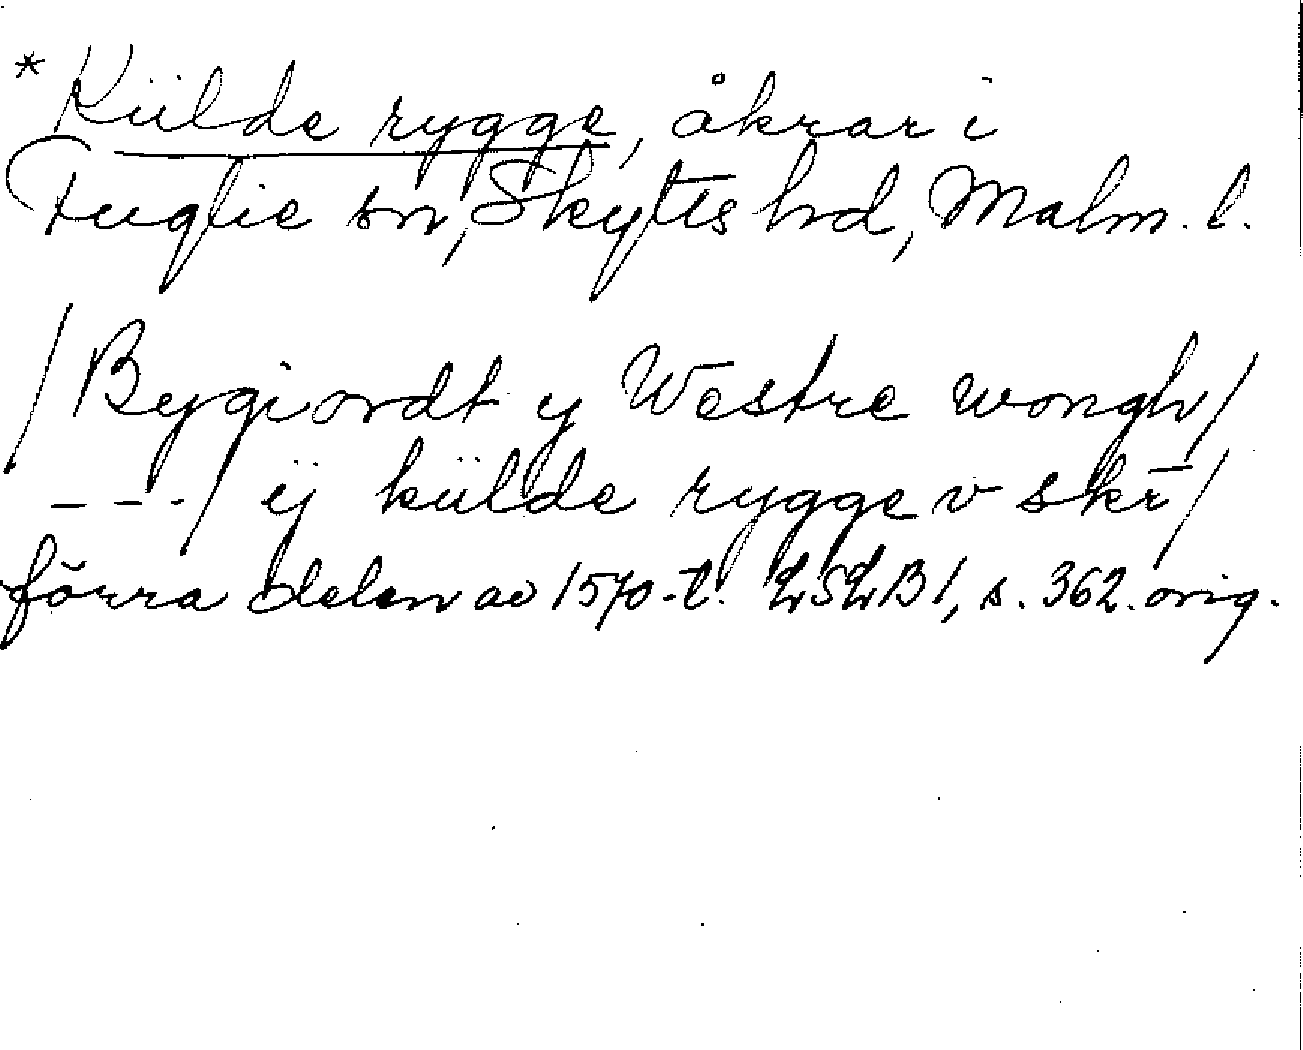 * Külde rygge, åkrar i
Fuglie sn, Skytts hd, Malm. l.
/ Bygiordt y Westre wongh /
- - - / ÿ külde rygge v skr̄ /
förra delen av 1570-t. LSLB 1, s. 362. orig.